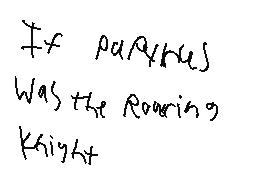 If papyrus
Was the Roaring
Knight